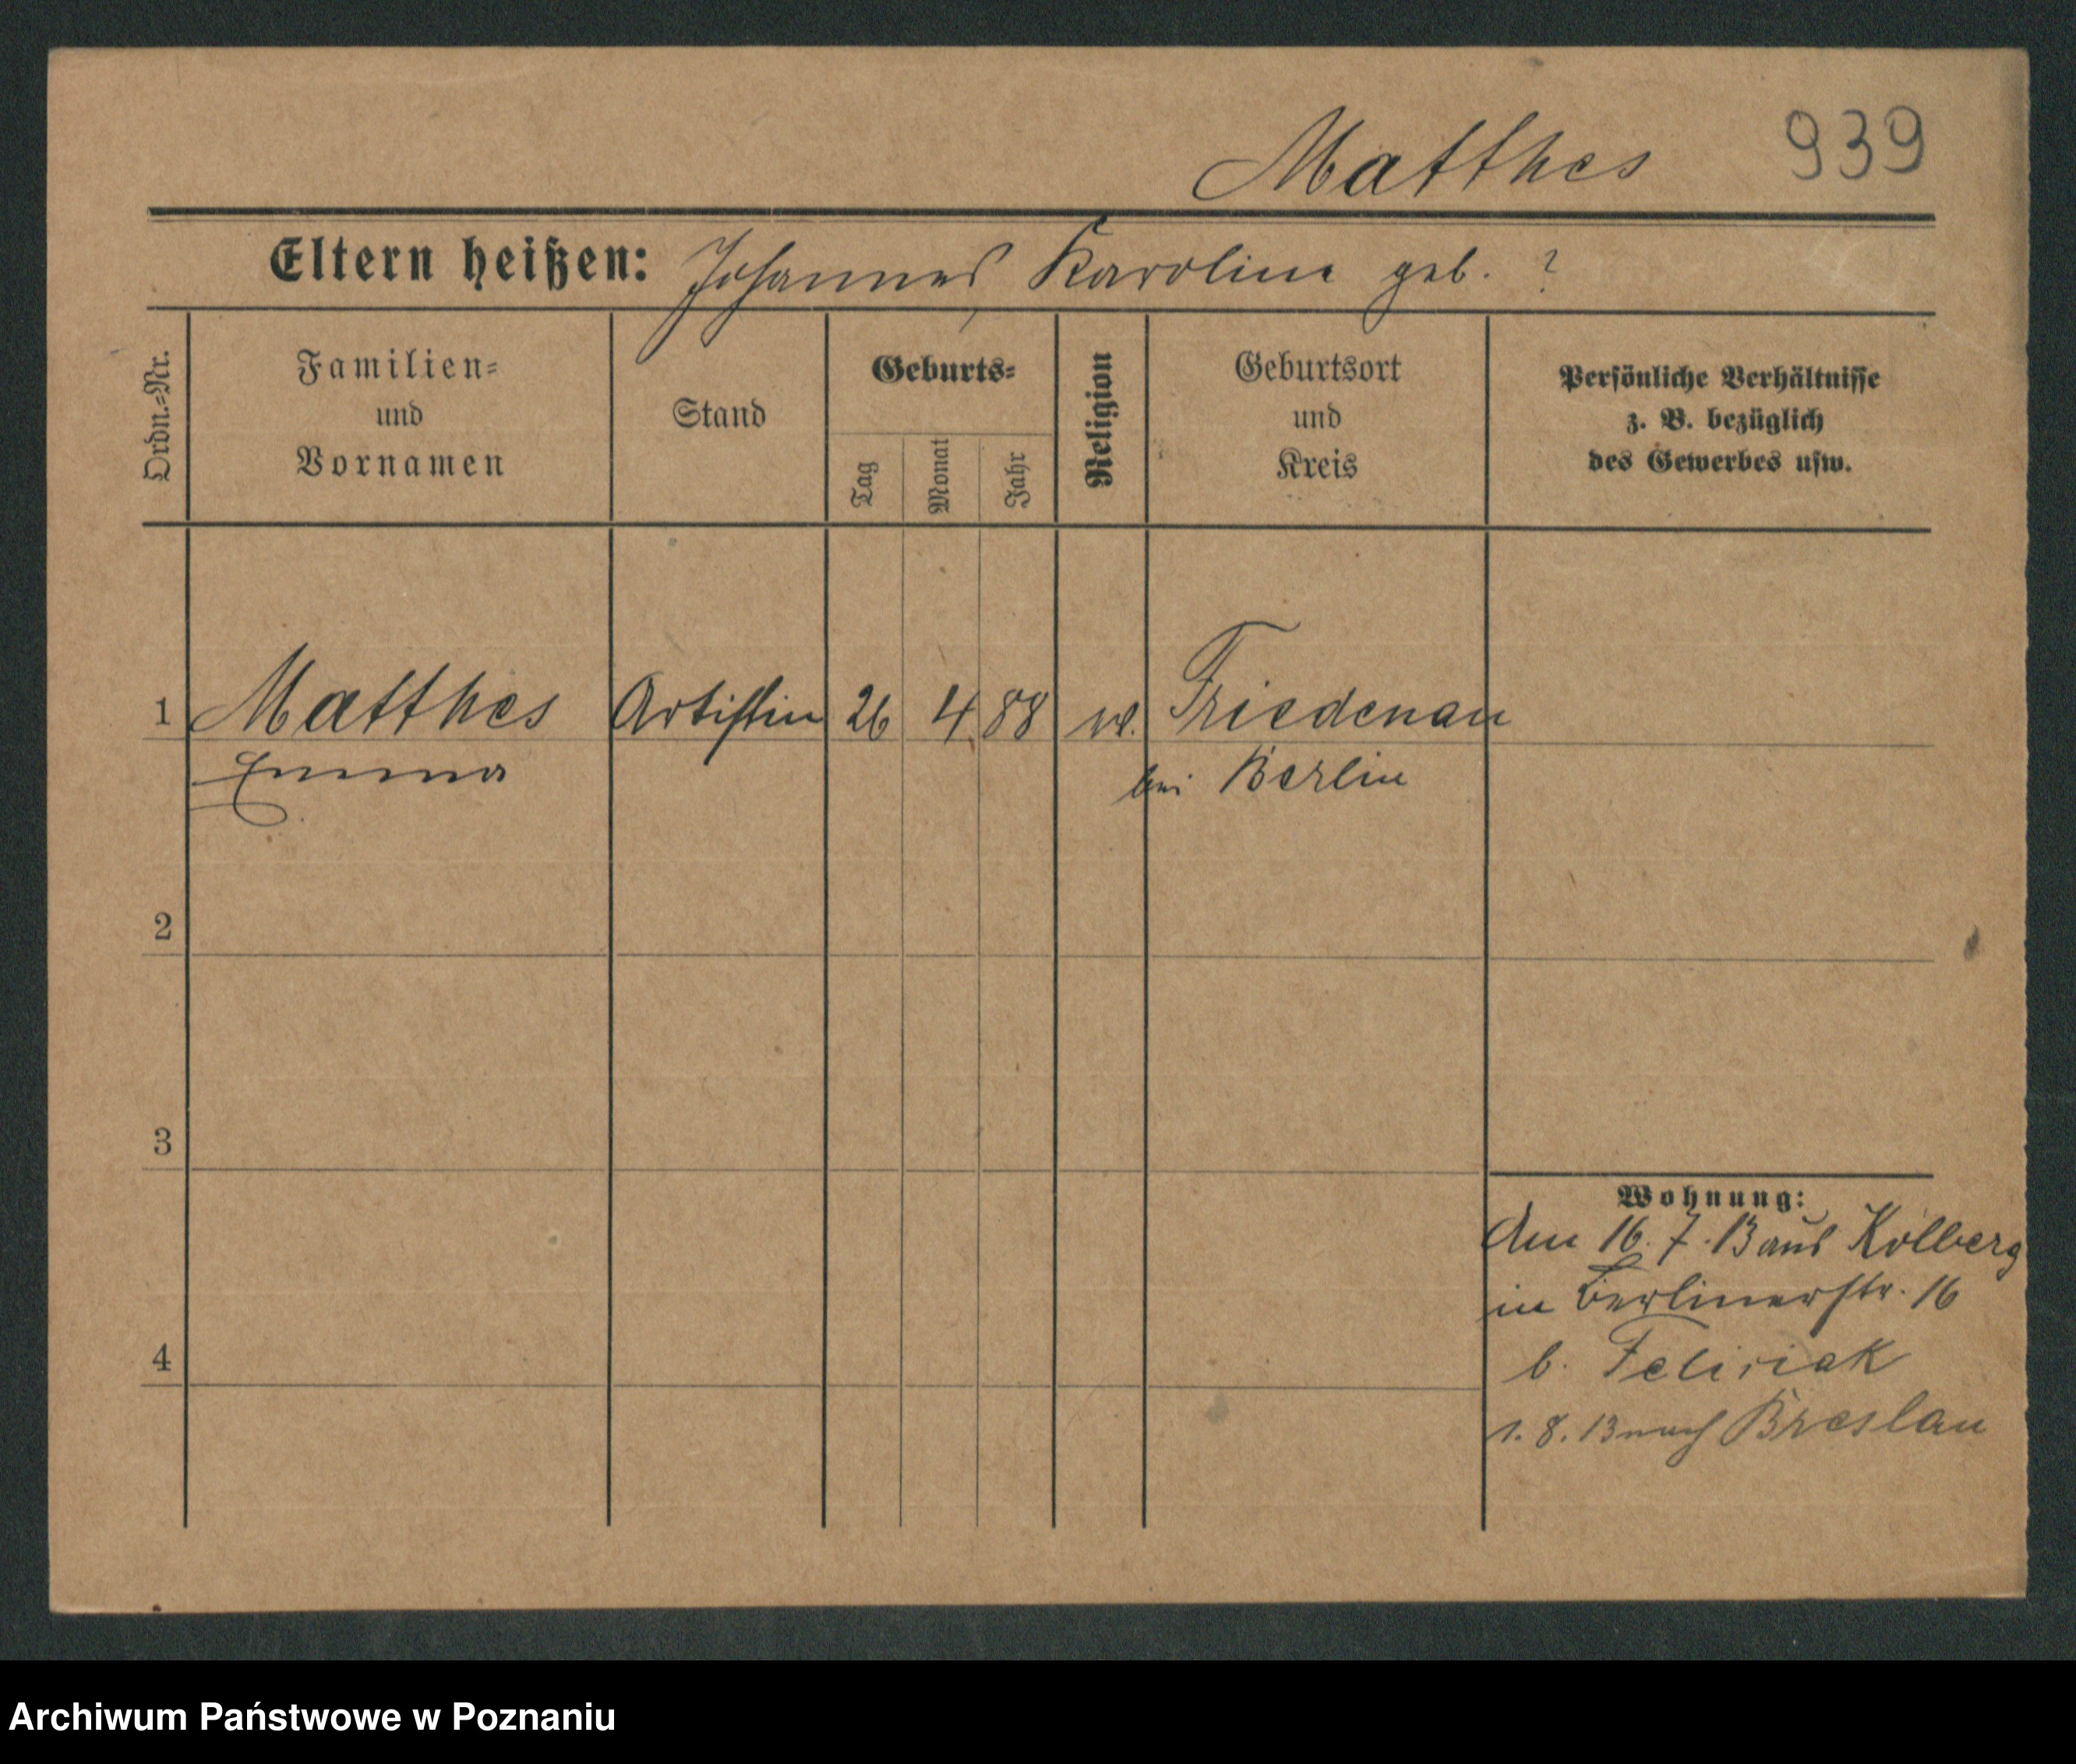 Matthes 939
Eltern heißen: Johannes, Karoline geb. ?
Ordn.-Nr.
Familien-
und
Vornamen
Stand
Geburts-
Tag
Monat
Jahr
Religion
Geburtsort
und
Kreis
Persönliche Verhältnisse
z. B. bezüglich
des Gewerbes usw.
1 Matthes Artistin 26 4 88 Friedenau
Emma bei Berlin
2
3
4
Wohnung:
Am 16.7.13 aus Kolberg
in Berlinerstr. 16
b. Felisiak
1.8.13 nach Breslau
Archiwum Państwowe w Poznaniu